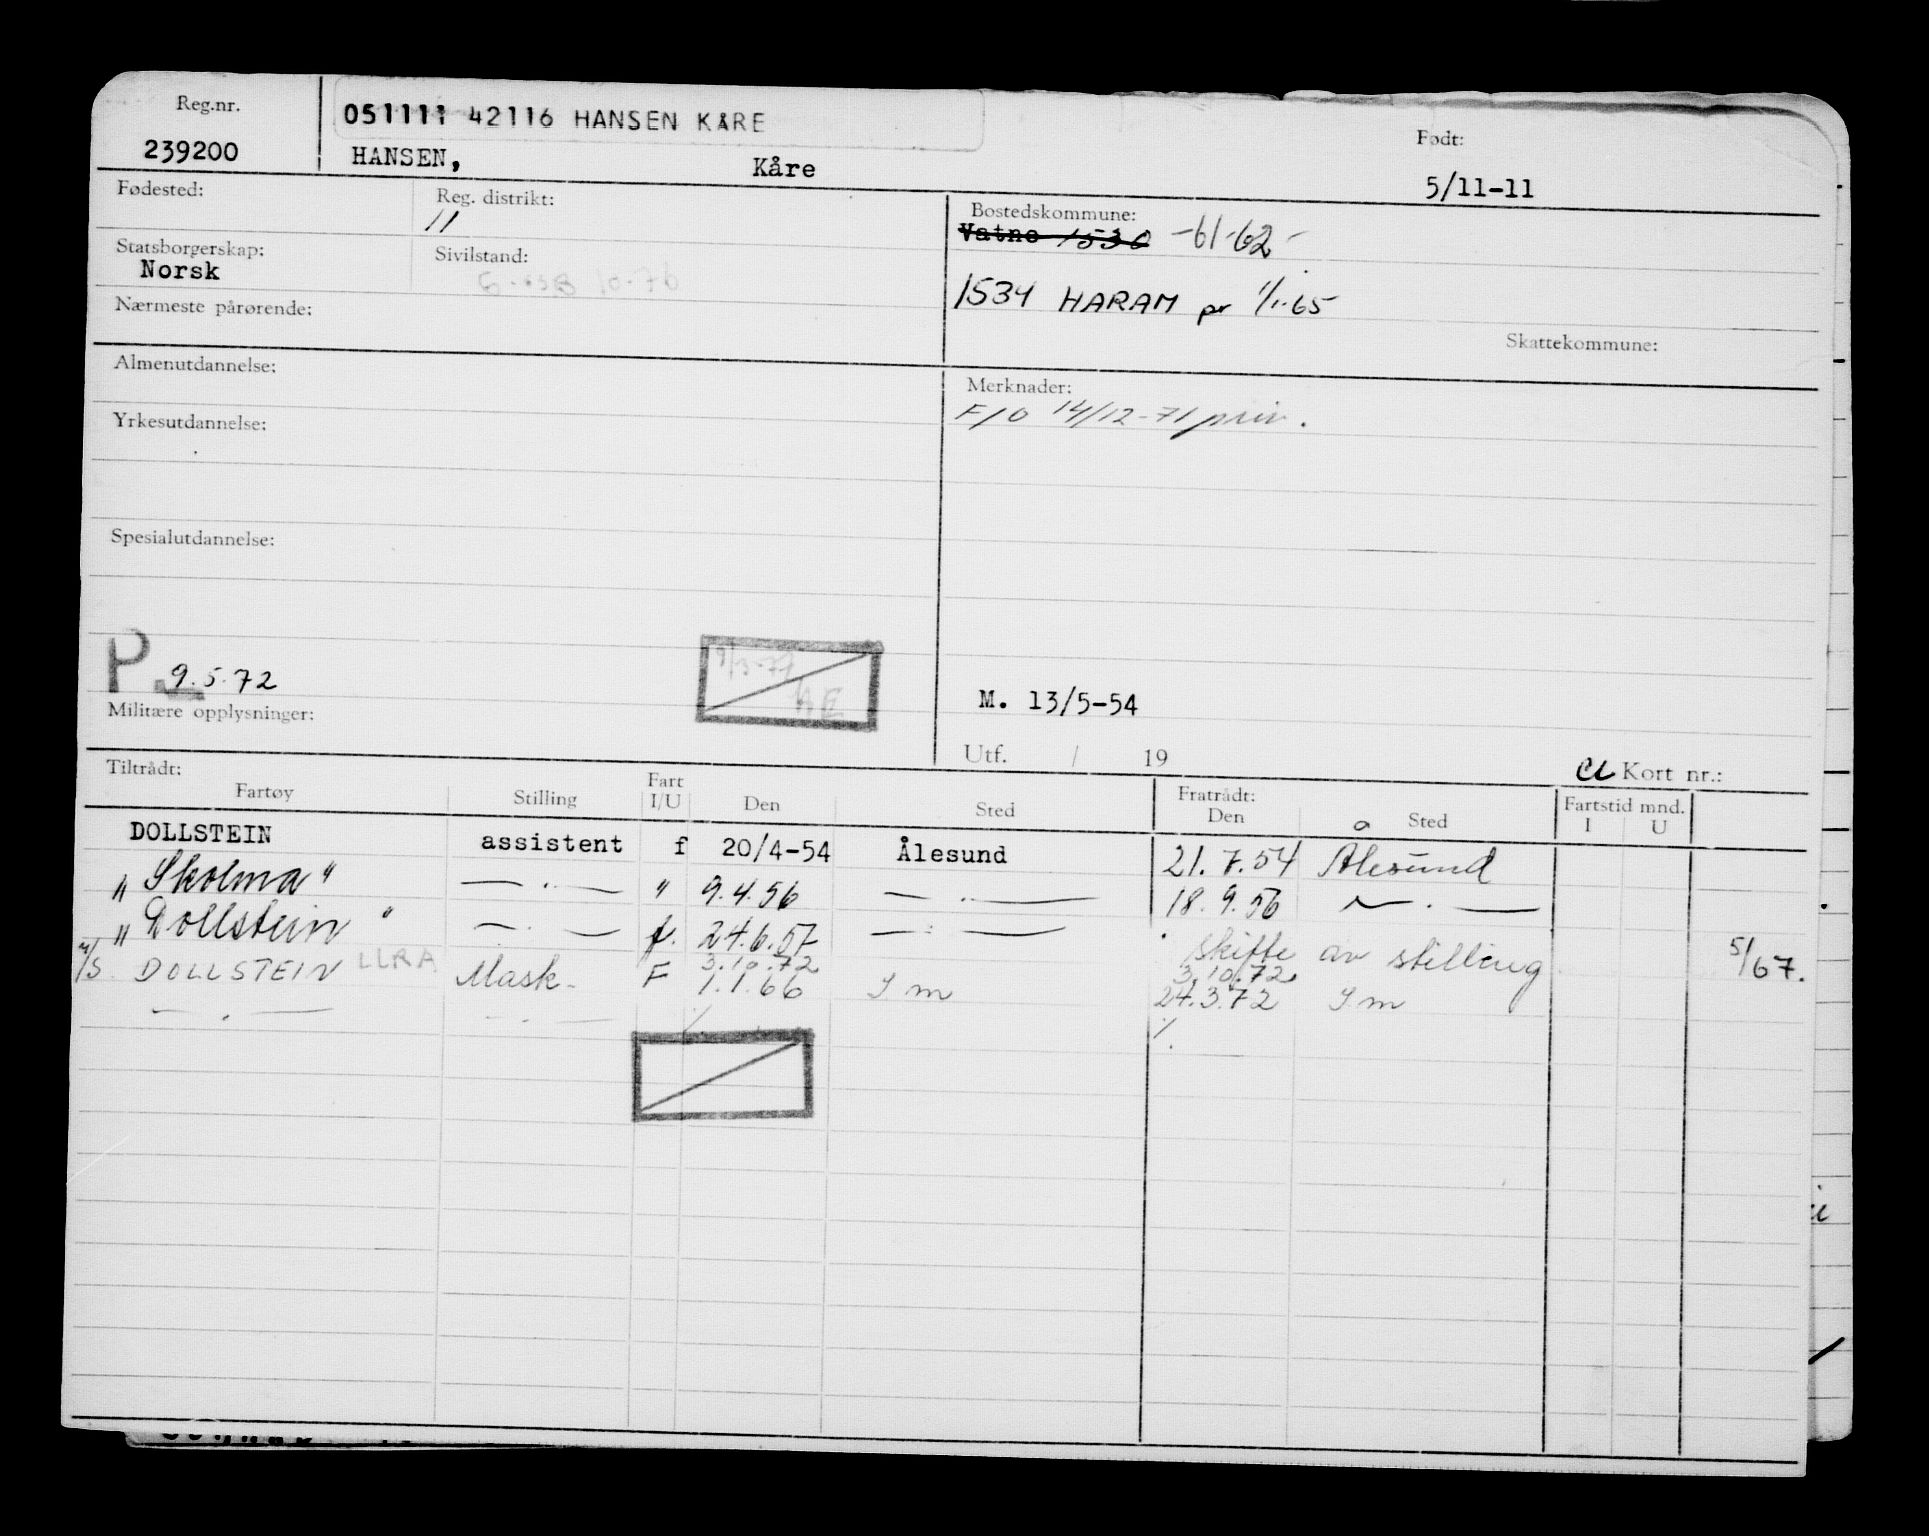 Reg.nr.
239200
051111 42116 HANSEN KÅRE
HANSEN, Kåre
Født:
5/11-11
Fødested:
Reg. distrikt:
11
Bostedskommune:
Vatne 1530 -61-62-
Statsborgerskap:
Norsk
Sivilstand:
1534 HARAM pr 1/1-65
Nærmeste pårørende:
Skattekommune:
Almenutdannelse:
Merknader:
F/O 14/12-71 priv.
Yrkesutdannelse:
Spesialutdannelse:
P 9.5.72
M. 13/5-54
Militære opplysninger:
Utf. / 19
Kort nr.:
Tiltrådt:
Fartøy Stilling Fart I/U Den Sted Fratrådt: Den Sted Fartstid mnd. I U
DOLLSTEIN assistent f 20/4-54 Ålesund 21.7.54 Ålesund
" Skolma " — " — " 9.4.56 — " — 18.9.56 — " —
" Dollstein " — " — f. 24.6.57 — " — skifte av stilling 5/67.
3.10.72 3.10.72
M/S DOLLSTEIN LLRA Mask. F 1.1.66 I m 24.3.72 I m
— " — — " — % %